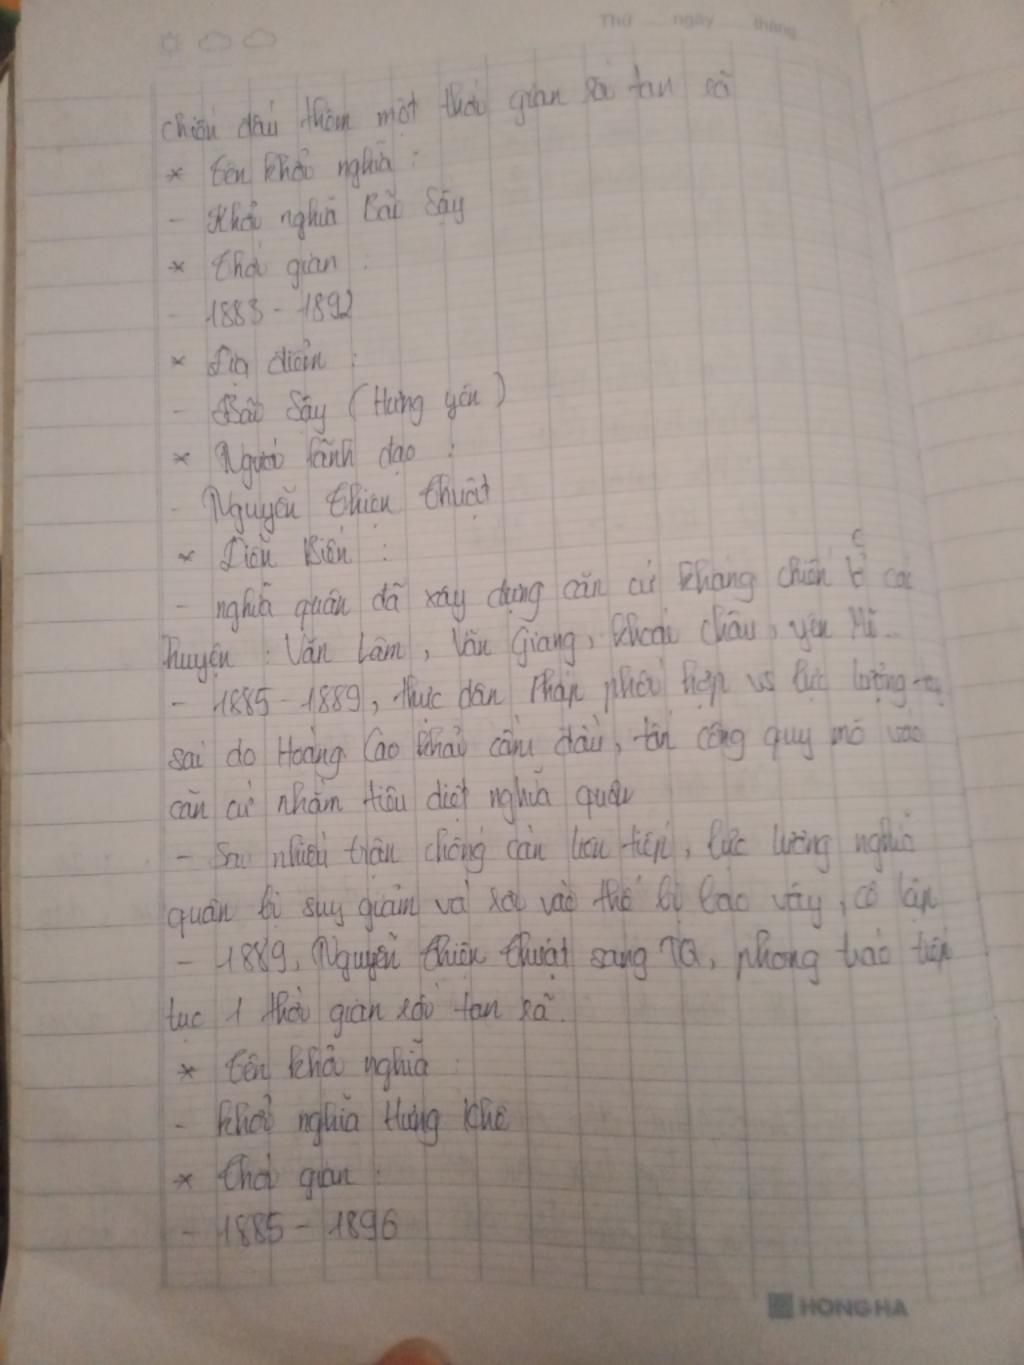 Thứ ngày tháng
chiến đấu thêm một thời gian rồi tan rã
* tên khởi nghĩa :
- Khởi nghĩa Bãi Sậy
* thời gian :
- 1883 - 1892
* Địa điểm :
- Bãi Sậy (Hưng yên)
* Người lãnh đạo :
- Nguyễn thiện thuật
* Diễn Biến :
- nghĩa quân đã xây dựng căn cứ kháng chiến ở các
huyện : Văn Lâm, Văn Giang, khoái châu, yên Mĩ..
- 1885 - 1889, thực dân Pháp phối hợp vs lực lượng tay
sai do Hoàng Cao Khải cầm đầu, tấn công quy mô vào
căn cứ nhằm tiêu diệt nghĩa quân
- Sau nhiều trận chống càn liên tiếp, lực lượng nghĩa
quân bị suy giảm và rơi vào thế bị bao vây, cô lập
- 1889, Nguyễn thiện thuật sang TQ, phong trào tiếp
tục 1 thời gian rồi tan rã.
* tên khởi nghĩa :
- khởi nghĩa Hưng Khê
* thời gian :
- 1885 - 1896
HONG HA